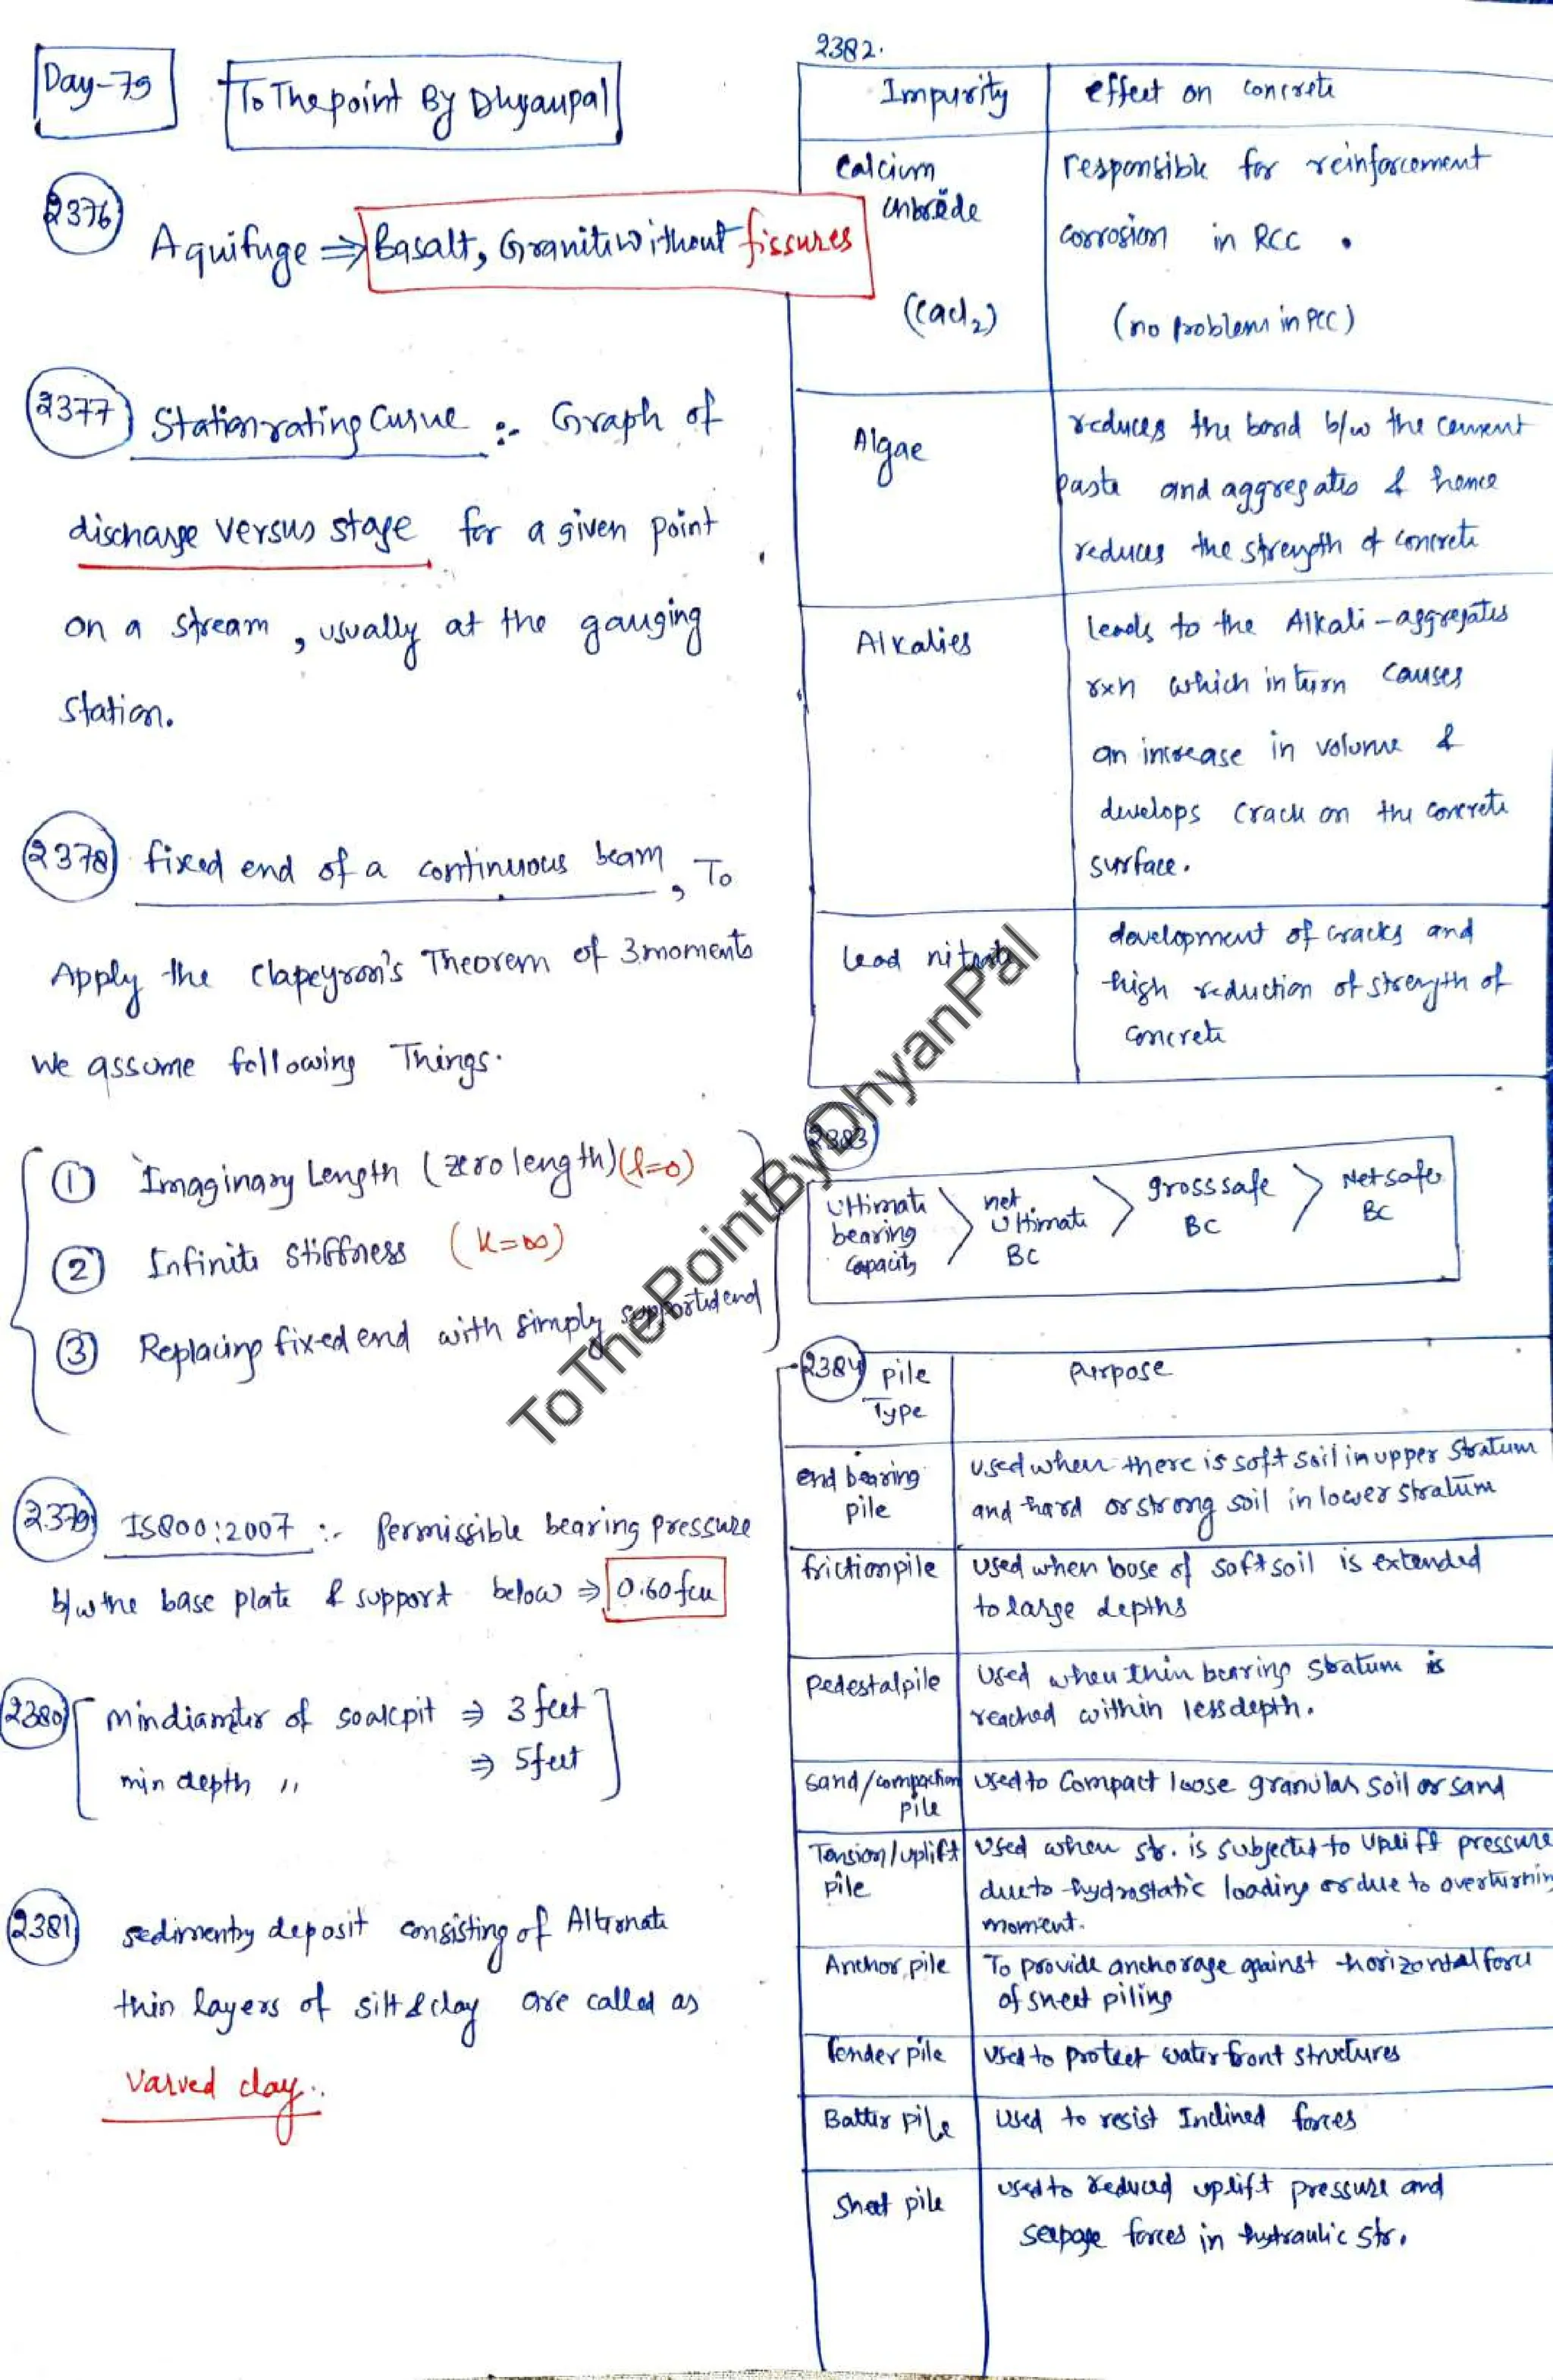 Day-79
To The point By Dhyanpal
2376
Aquifuge ⇒ Basalt, Granite without fissures
2377 Station rating Curve :- Graph of
discharge versus stage for a given point
on a stream, usually at the gauging
station.
2378 fixed end of a continuous beam, To
Apply the Clapeyron's Theorem of 3 moments
we assume following Things.
① Imaginary Length (zero length) (l=0)
② Infinite stiffness (k=∞)
③ Replacing fixed end with simply supported end
2379 IS800:2007 :- Permissible bearing pressure
b/w the base plate & support below ⇒ 0.60fcu
2380 min diamter of soakpit ⇒ 3 feet
min depth ,, ⇒ 5 feet
2381 sedimentry deposit consisting of Alternate
thin layers of silt & clay are called as
Varved clay.
2382.
Impurity effect on concrete
Calcium responsible for reinforcement
corrosion in RCC.
(CaCl2) (no problem in PCC)
Algae reduces the bond b/w the cement
paste and aggregates & hence
reduces the strength of concrete
Alkalies leads to the Alkali-aggregates
rxn which in turn causes
an increase in volume &
develops crack on the concrete
surface.
Lead nitrate development of cracks and
high reduction of strength of
concrete
2383
Ultimate bearing capacity > net Ultimate BC > gross safe BC > Net safe BC
2384 pile Type Purpose
end bearing pile used when there is soft soil in upper stratum
and hard or strong soil in lower stratum
friction pile used when base of soft soil is extended
to large depths
Pedestal pile used when thin bearing stratum is
reached within less depth.
sand/compaction pile used to compact loose granular soil or sand
Tension/uplift pile used when str. is subjected to uplift pressure
due to hydrostatic loading or due to overturnin
moment.
Anchor pile To provide anchorage against horizontal force
of sheet piling
Fender pile used to protect water front structures
Batter pile used to resist Inclined forces
Sheet pile used to reduced uplift pressure and
seepage forces in hydraulic str.
ToThePointByDhyanPal